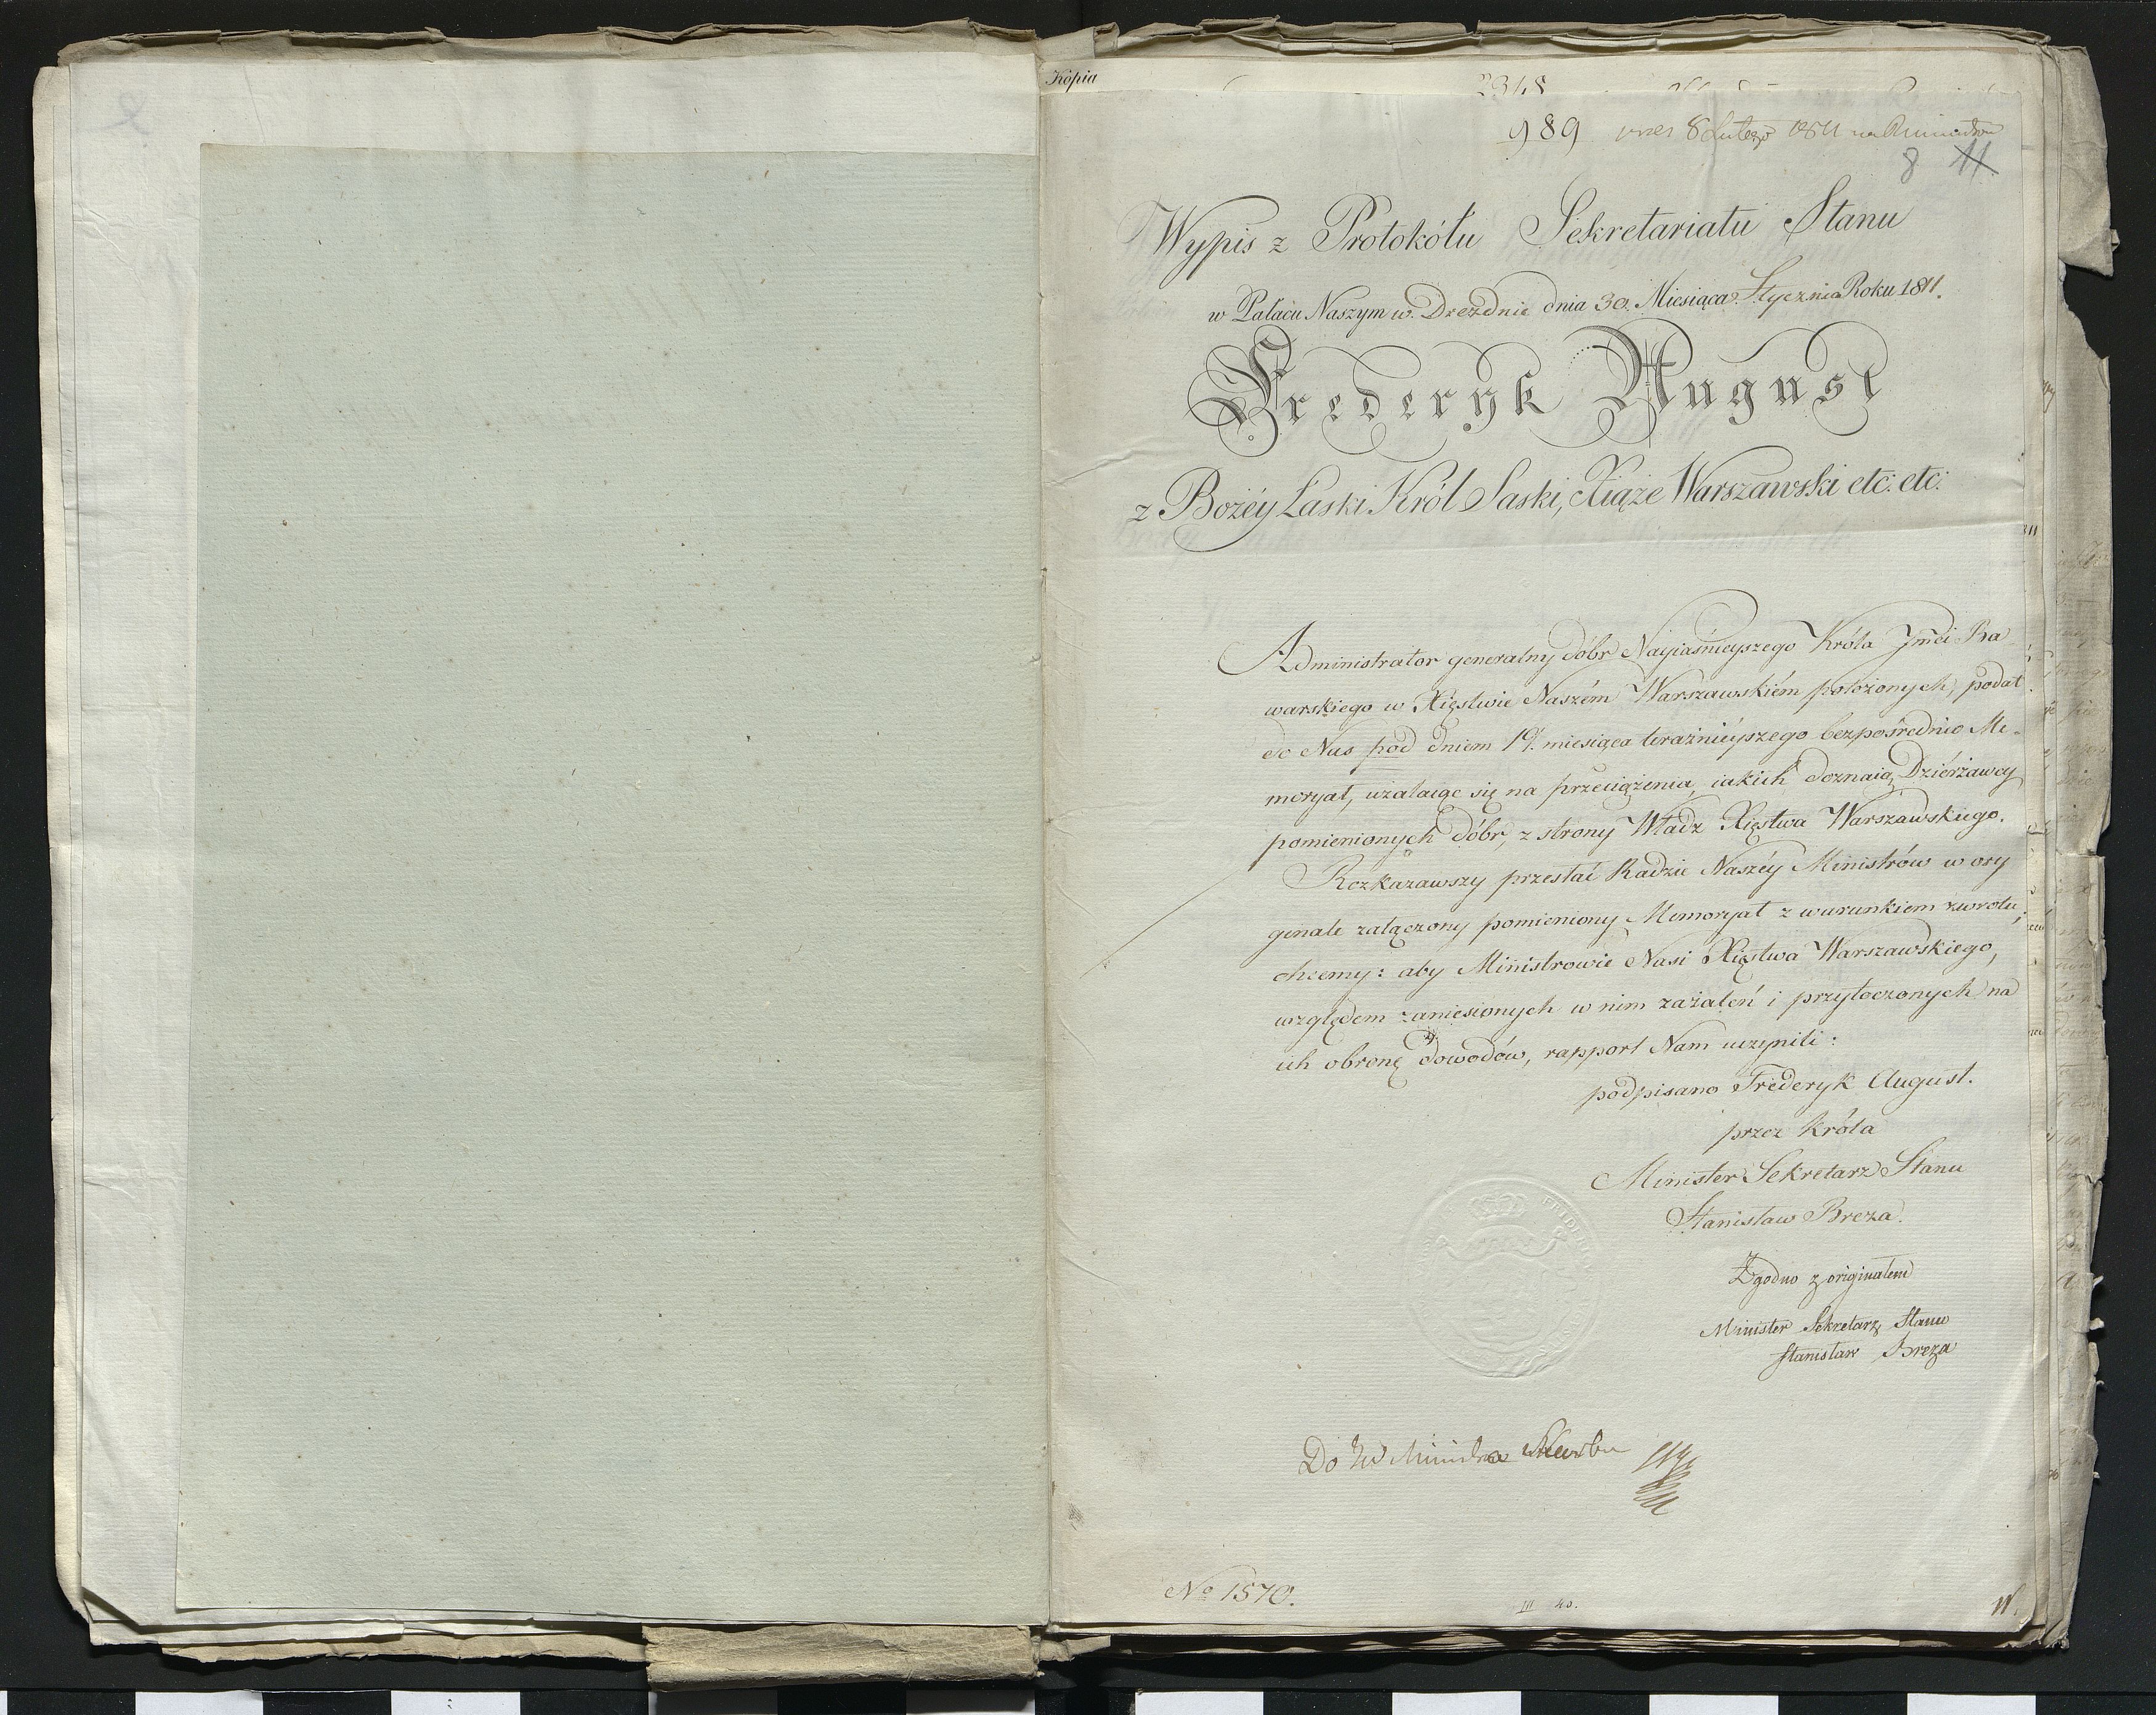 Kopia
989 8 Lutego 1811 na
8 11
Wypis z Protokółu Sekretariatu Stanu
w Pałacu Naszym w Dreźdnie dnia 30. Miesiąca Stycznia Roku 1811.
Frederyk August
z Bożéy Łaski Król Saski, Xiąże Warszawski etc: etc:
Administrator generalny dóbr Nayiaśnieyszego Króla Jmći Ba-
warskiego w Xięstwie Naszém Warszawskiém położonych, podał
do Nas pod dniem 19. miesiąca teraźnieyszego bezpośrednio Me-
moryał, użalaiąc się na przeciążenia, iakich doznaią Dzierżawcy
pomienionych dóbr, z strony Władz Xięstwa Warszawskiego.
Rozkazawszy przesłać Radzie Naszéy Ministrów w ory
ginale załączony pomieniony Memoryał z warunkiem zwrotu,
chcemy: aby Ministrowie Nasi Xięstwa Warszawskiego,
względem zaniesionych w nim zażaleń i przytoczonych na
ich obronę dowodów, rapport Nam uczynili:
podpisano Frederyk August.
przez Króla
Minister Sekretarz Stanu
Stanisław Breza.
Zgodno z originałem
Minister Sekretarz Stanu
Stanisław Breza
Do JW Ministra Skarbu
No 1570.
III 40.